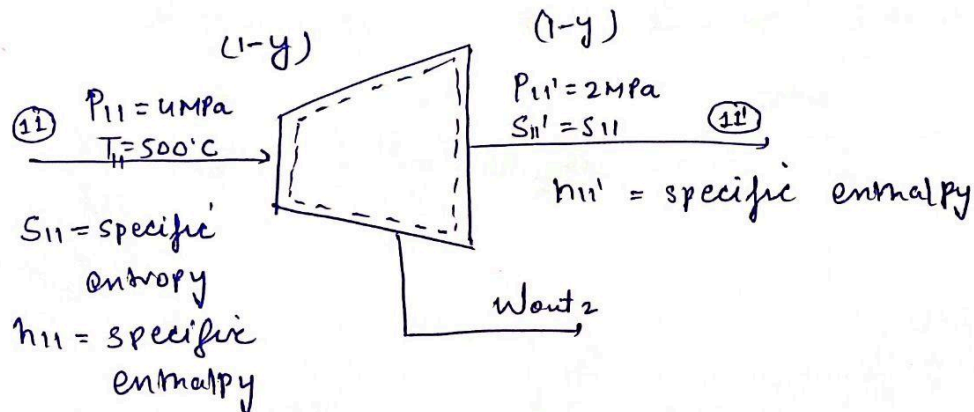 (1-y)
(1-y)
11
P11 = 4MPa
T11 = 500°C
P11' = 2MPa
S11' = S11
11'
h11' = specific enthalpy
S11 = specific
entropy
Wout2
h11 = specific
enthalpy